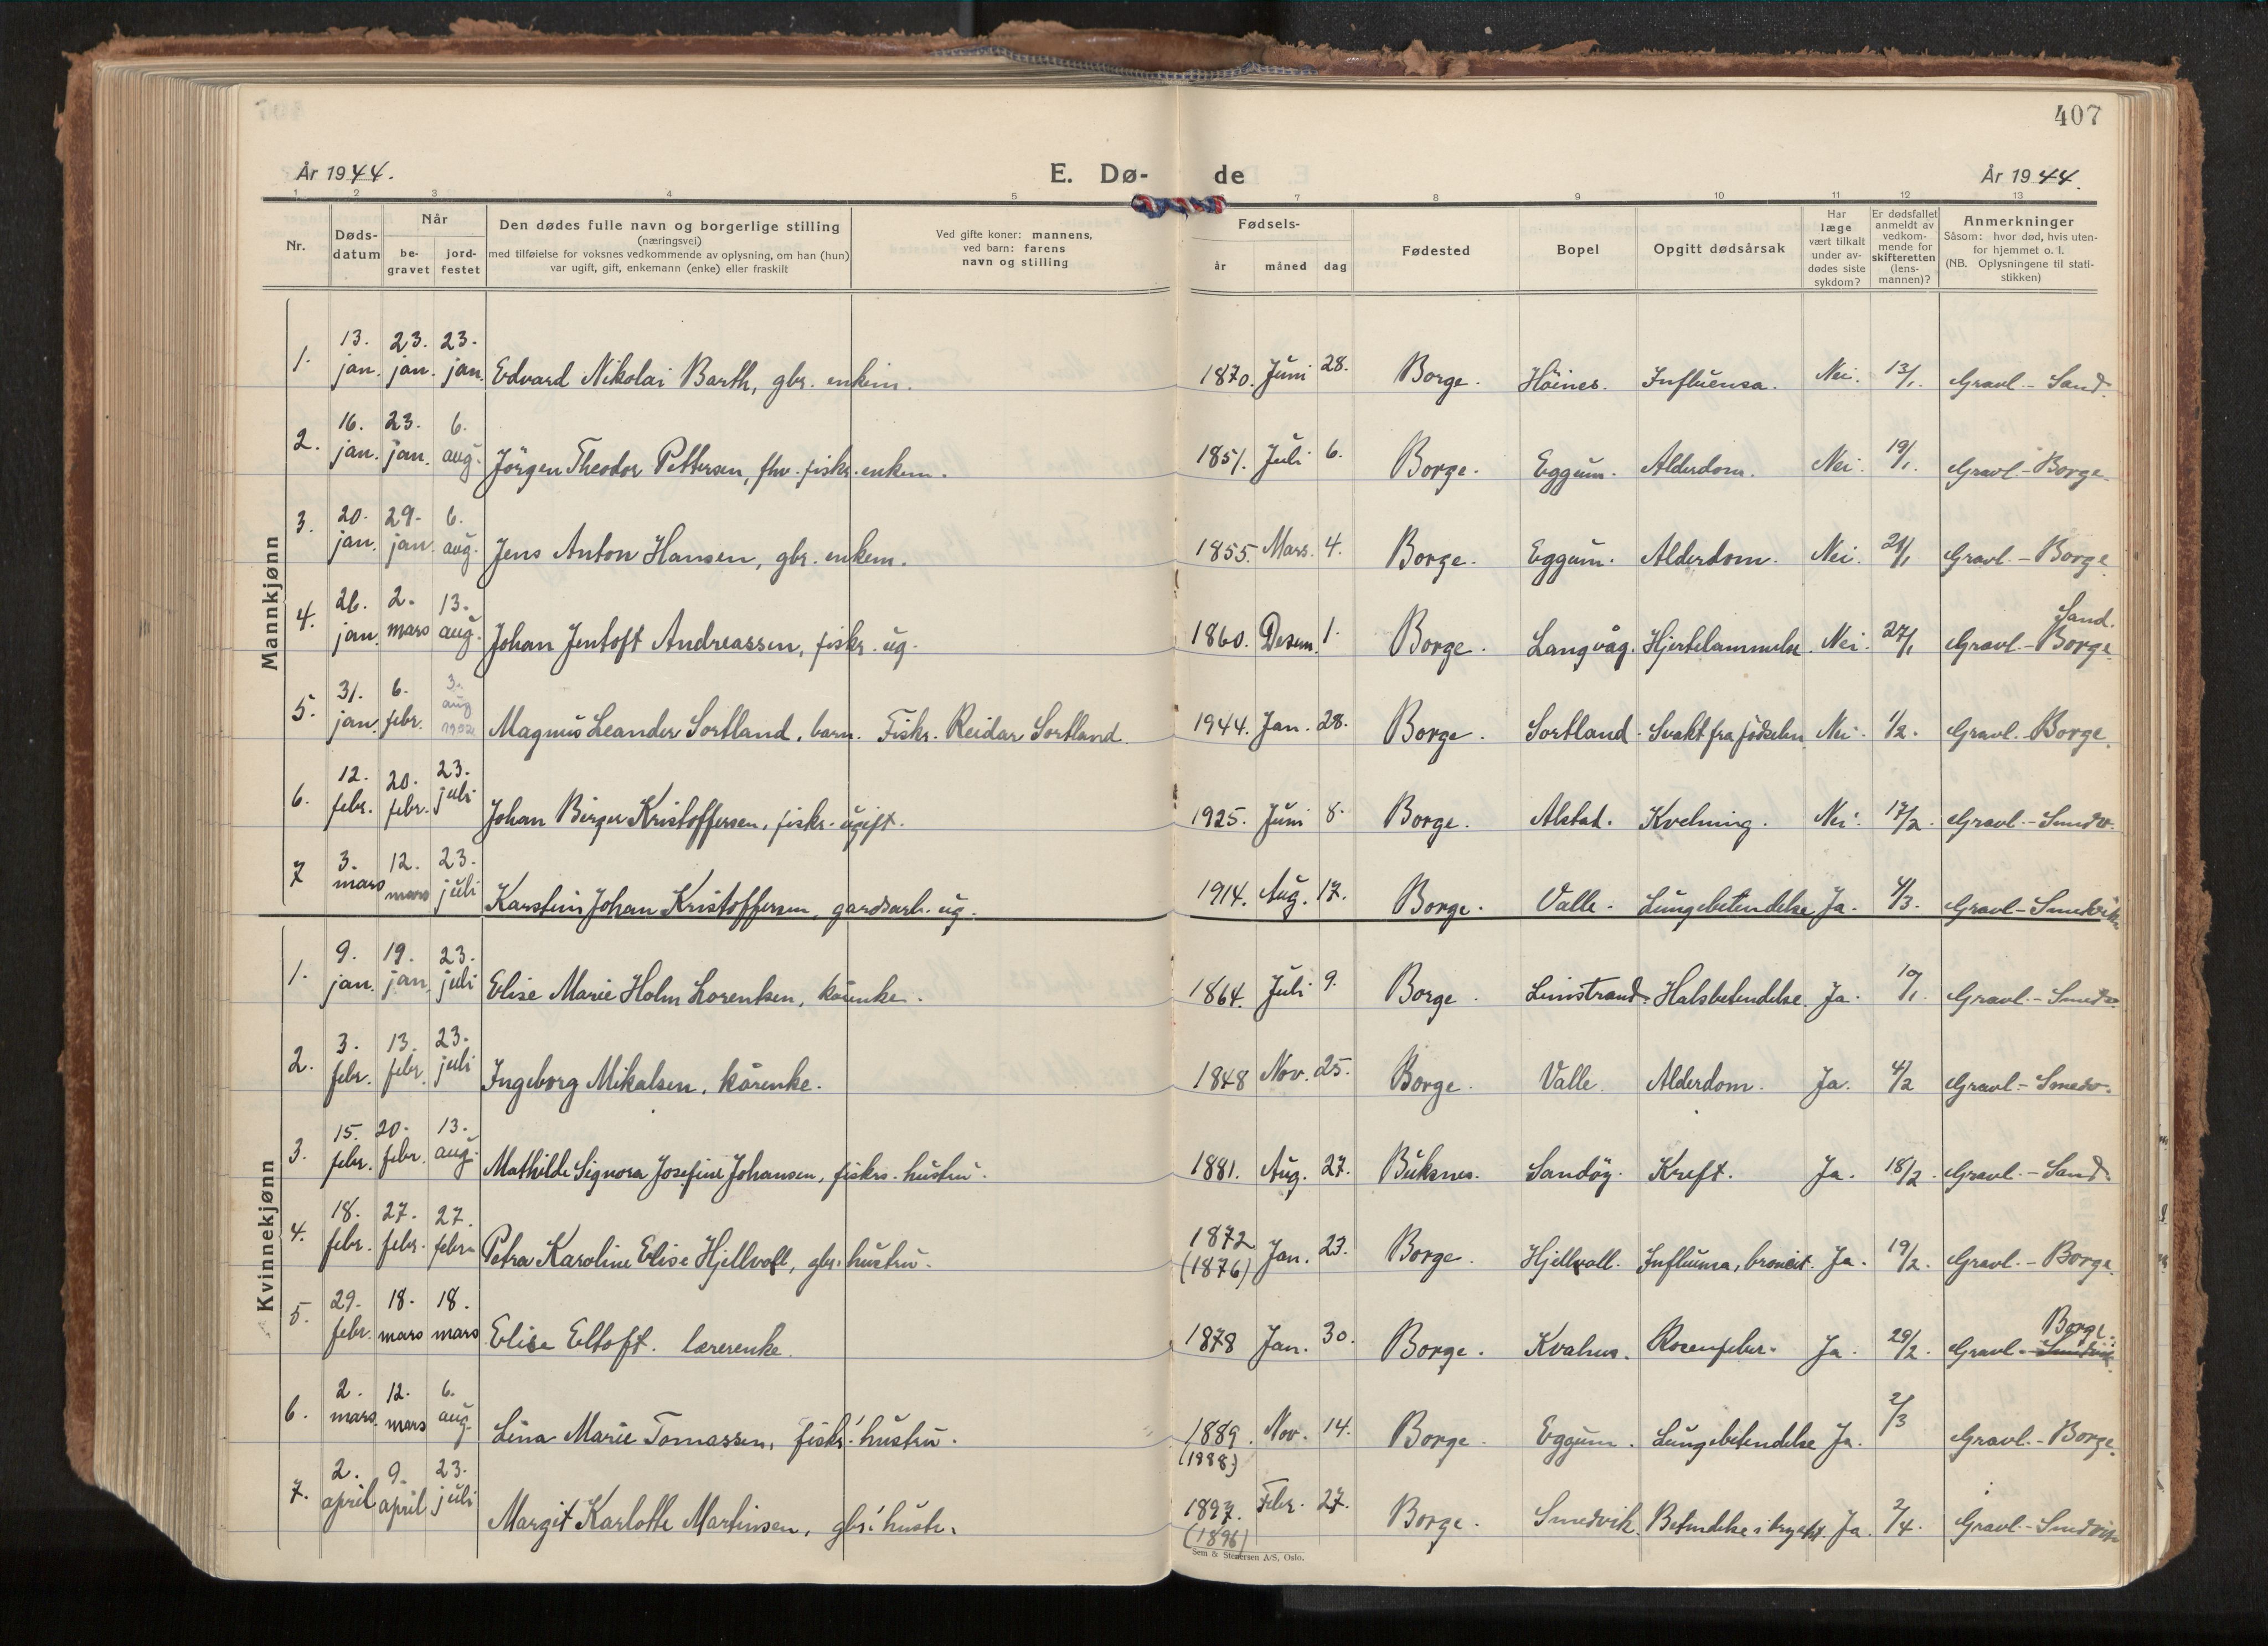 407
År 1944.
E. Dø- de
År 1944.
1 2 3 4 5 7 8 9 10 11 12 13
Nr.
Døds-
datum
Når
be-
gravet
jord-
festet
Den dødes fulle navn og borgerlige stilling
(næringsvei)
med tilføielse for voksnes vedkommende av oplysning, om han (hun)
var ugift, gift, enkemann (enke) eller fraskilt
Ved gifte koner: mannens,
ved barn: farens
navn og stilling
Fødsels-
år måned dag
Fødested
Bopel
Opgitt dødsårsak
Har
læge
vært tilkalt
under av-
dødes siste
sykdom?
Er dødsfallet
anmeldt av
vedkom-
mende for
skifteretten
(lens-
mannen)?
Anmerkninger
Såsom: hvor død, hvis uten-
for hjemmet o. l.
(NB. Oplysningene til stati-
stikken)
Mannkjønn
1. 13. jan. 23. jan. 23. jan. Edvard Nikolai Barth, gbr. enkem. 1870. Juni 28. Borge. Höines. Influensa. Nei. 13/1. Gravl. - Sand.
2. 16. jan. 23. jan. 6. aug. Jörgen Theodor Pettersen, fhv. fiskr. enkem. 1851. Juli 6. Borge. Eggum. Alderdom. Nei. 19/1. Gravl. - Borge.
3. 20. jan. 29. jan. 6. aug. Jens Anton Hansen, gbr. enkem. 1855. Mars. 4. Borge. Eggum. Alderdom. Nei. 21/1 Gravl. - Borge.
Sand.
4. 26. jan. 2. mars 13. aug. Johan Jentoft Andreassen, fiskr. ug. 1860. Desem. 1. Borge. Langvåg. Hjertelammelse. Nei. 27/1 Gravl. - Borge.
5. 31. jan. 6. febr. 3. aug 1952 Magnus Leander Sortland, barn. Fiskr. Reidar Sortland. 1944. Jan. 28. Borge. Sortland. Svakt fra födselen Nei. 1/2. Gravl. - Borge.
6. 12. febr. 20. febr. 23. juli Johan Birger Kristoffersen, fiskr. ugift. 1925. Juni 8. Borge. Alstad. Kvelning. Nei. 17/2. Gravl. - Smedv.
7 3. mars 12. mars 23. juli Karstein Johan Kristoffersen, gardsarb. ug. 1914. Aug. 17. Borge. Valle. Lungebetendelse Ja. 4/3. Gravl - Smedvik
Kvinnekjønn
1. 9. jan. 19. jan. 23. juli Elise Marie Holm Lorentsen, kårenke. 1864. Juli 9. Borge. Limstrand. Halsbetendelse. Ja. 10/1. Gravl. - Smedv.
2. 3. febr. 13. febr. 23. juli Ingeborg Mikalsen, kårenke. 1848 Nov. 25. Borge. Valle. Alderdom. Ja. 4/2 Gravl. - Smedv.
3. 15. febr. 20. febr. 13. aug. Mathilde Signora Josefine Johansen, fiskrs. hustru. 1881. Aug. 27. Buksnes. Sandöy. Kreft. Ja. 18/2. Gravl. - Sand.
4. 18. febr. 27. febr. 27. febr. Petra Karoline Elise Hjellvoll, gbr. hustru. 1872 (1876) Jan. 23. Borge. Hjellvoll. Influensa, broncit. Ja. 19/2. Gravl. - Borge.
Borge.
5. 29. febr. 18. mars 18. mars Elise Eltoft. lærerenke. 1878 Jan. 30. Borge. Kvalnes. Rosenfeber. Ja. 29/2. Gravl. - Smedvik
6. 2. mars. 12. mars 6. aug. Lina Marie Tomassen, fiskr.' hustru. 1889. (1888) Nov. 14. Borge. Eggum. Lungebetendelse Ja. 2/3 Gravl. - Borge.
7. 2. april 9. april 23. juli Margit Karlotte Martinsen, gbr.' hustr. 1897. (1896) Febr. 27. Borge. Smedvik. Betendelse i brystet. Ja. 2/4. Gravl. - Smedvik
Sem & Stenersen A/S, Oslo.